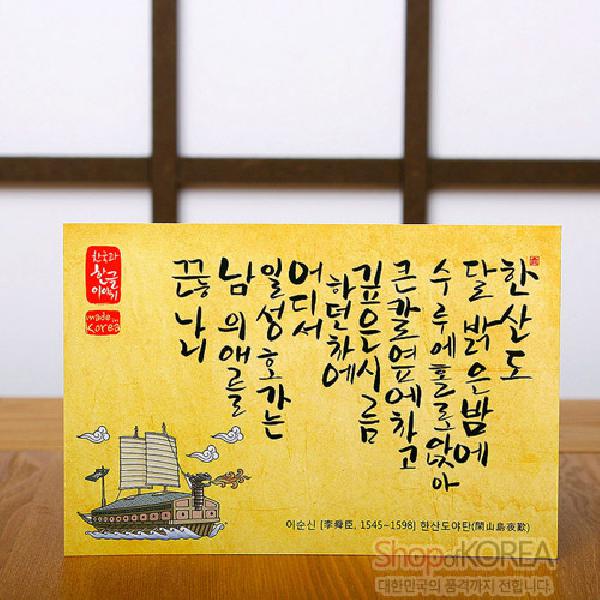 한산도
달 밝은밤에
수루에홀로앉아
큰칼옆에차고
깊은시름
하던차에
어디서
일성호가는
남의애를
끊나니
한국과
한글
이야기
made in
Korea
이순신 [李舜臣, 1545~1598] 한산도야탄(閑山島夜歎)
Shop of KOREA
대한민국의 품격까지 전합니다.